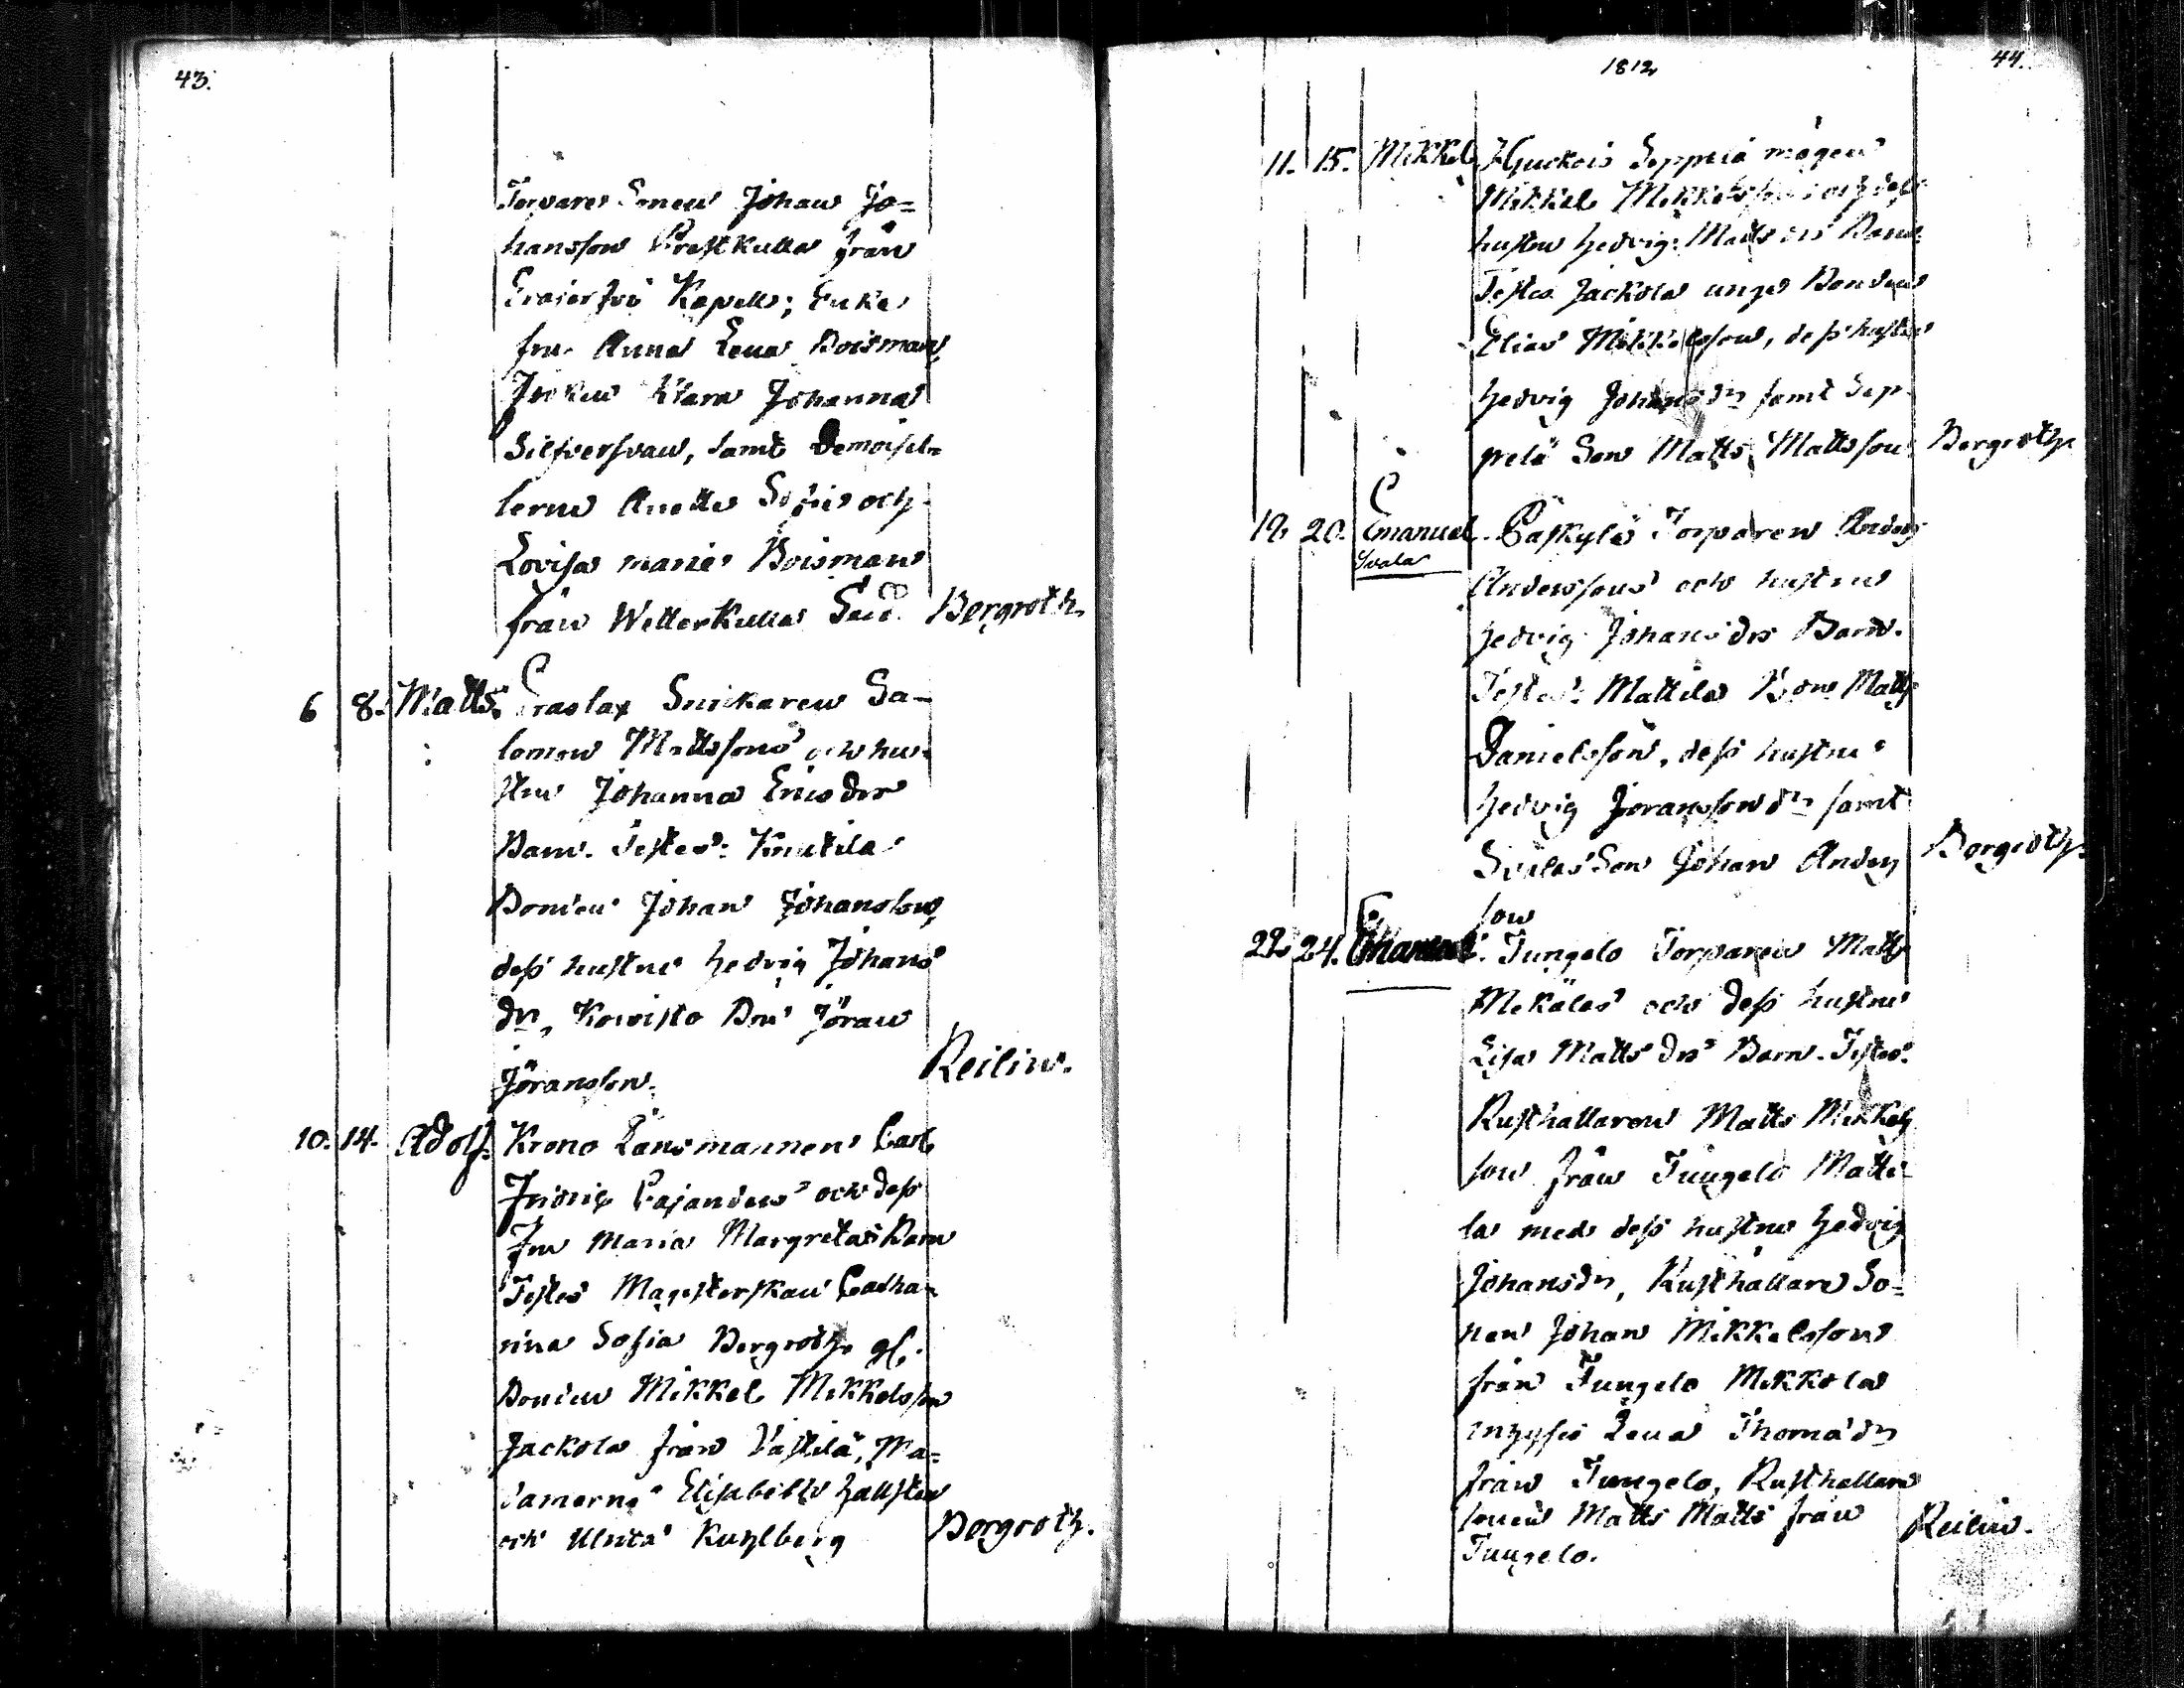 43.
Torpare Sonen Johan Jo=
hansson Prestkulla från
Kapell; Enke
fru Anna Lena Boisman,
Fröken Klara Johanna
Silfversvan, samt Demoisel=
lerne Anette Sofie och
Lovisa Maria Boisman
från Wetterkulla Bergroth.
6 8. Matts. Snickaren Sa-
lomon Mattssons och hu-
strus Johanna Ericsdrs
Barn. Testes: Knutila
Bonden Johan Johansson,
dess hustru Hedvig Johans
dr, Kowisto Bon Jöran
Jöransson. Reilin.
10. 14. Adolf. Krono Länsmannen Carl
Fridric Cajanders och dess
Fru Maria Margretas Barn
Testes Magisterskan Catha-
rina Sofia Bergroth gl.
Bonden Mikkel Mikkelsson
Jackola från Västilä, Ma=
damerne Elisabeth Hallsten
och Ulrica Kuhlberg Bergroth.
1812
44.
11. 15. Mikkel Huckois Seppälä mågen
Mikkel Mikkelssons och dess
hustru Hedvig Matts drs Barn.
Testes Jackola unge Bonden
Elias Mikkelsson, dess hustru
Hedvig Johansdr samt Sep-
pelä Son Matts Mattsson Bergroth.
19. 20. Emanuel. Torparen Anders
Svala
Anderssons och hustrus
Hedvig Johansdrs Barn.
Testes: Mattila Bon Matts
Danielsson, dess hustru
Hedvig Joransson dr samt
Svalas Son Johan Anders Bergroth.
son
22. 24. Emanuel. Jungelo Torparen Matts
och dess hustrus
Lisa Matts drs Barn. Testes:
Rusthållaren Matts Mikkels
son från Jungelo Matti-
la med dess hustru Hedvig
Johansdr, Rusthållare So-
nen Johan Mikkelsson
från Jungelo Mikkola
inhyses Lena Thomædr
från Jungelo, Rusthållare
sonen Matts Matts från Reilin.
Jungelo.